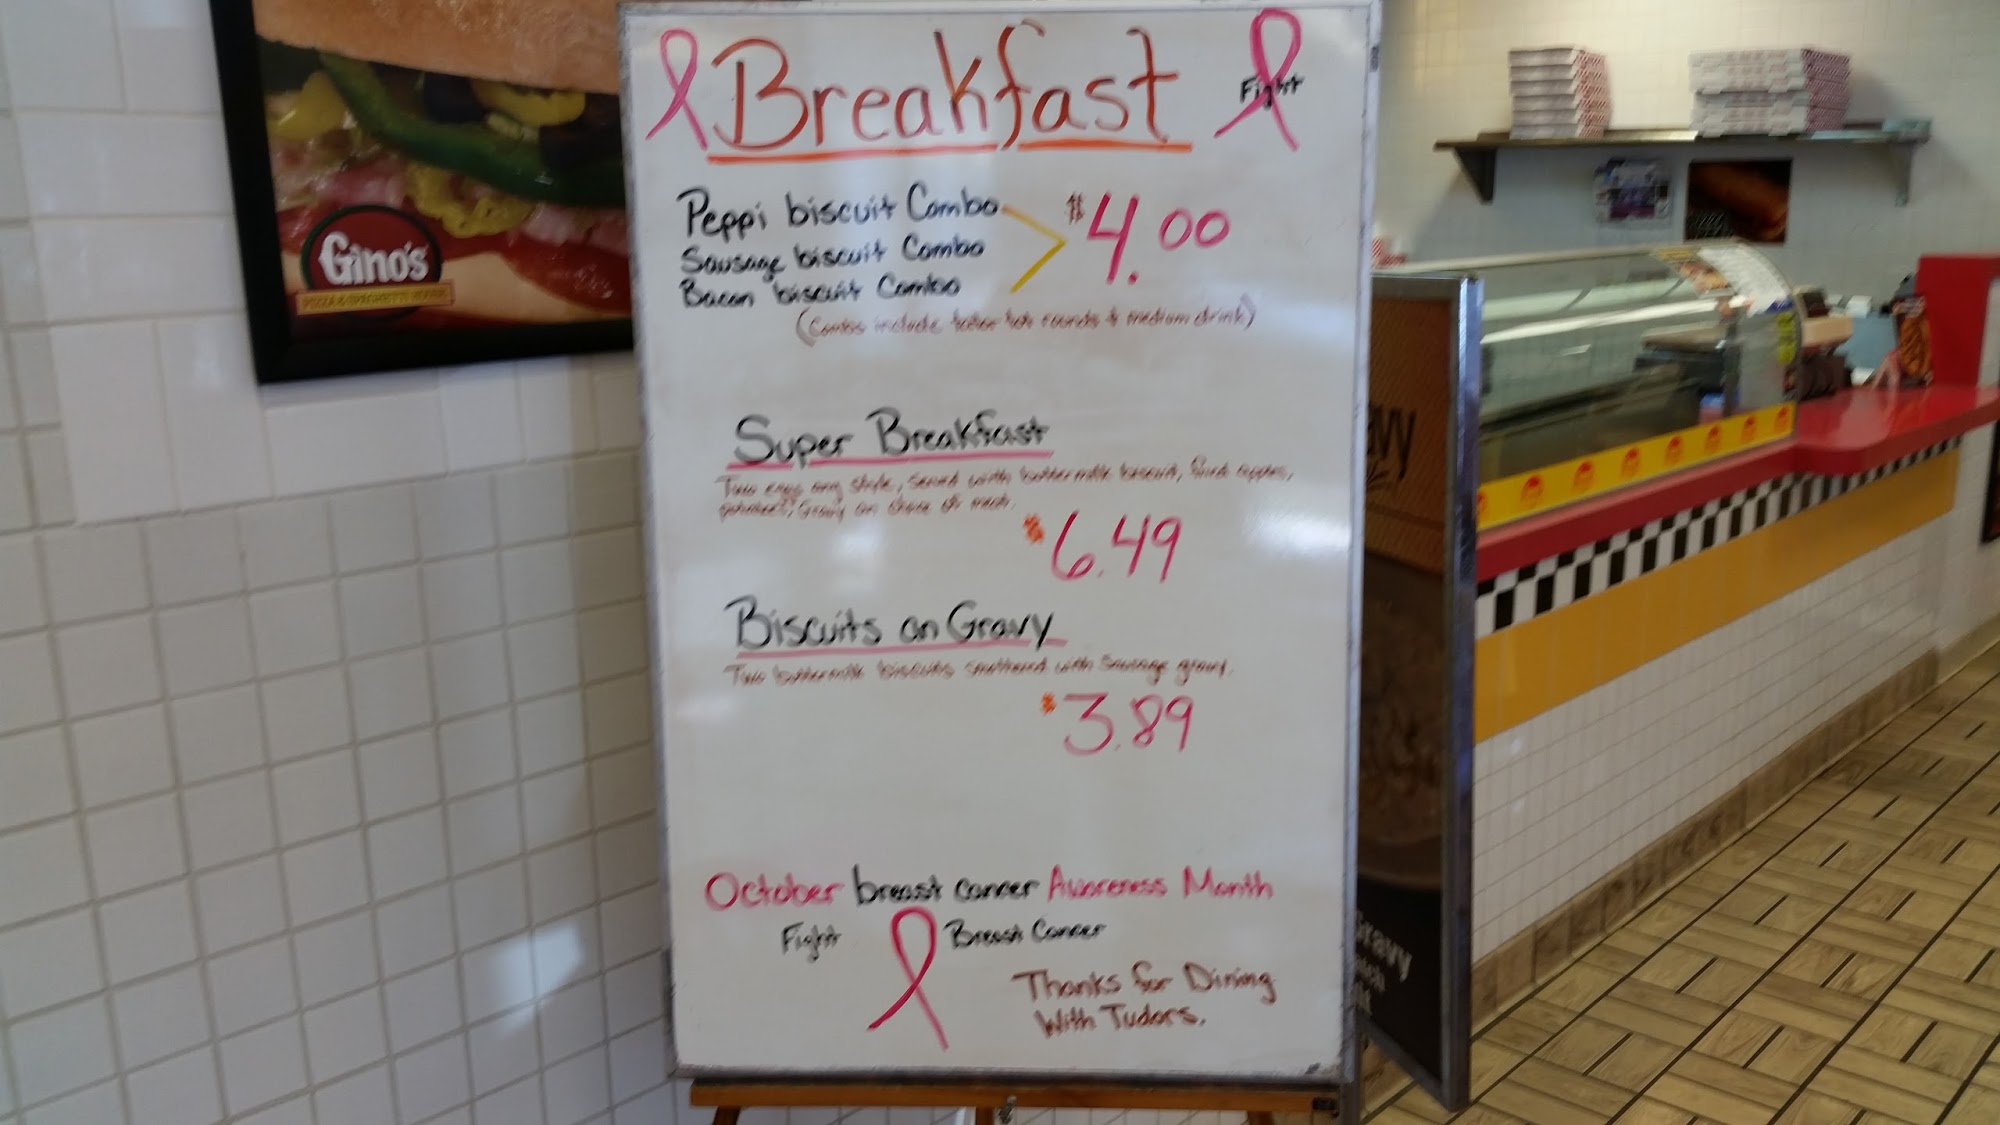 Breakfast
Fight
Peppi biscuit Combo
Sausage biscuit Combo
Bacon biscuit Combo
$4.00
(Combos include tater tot rounds & medium drink)
Super Breakfast
Two eggs any style, served with buttermilk biscuit, fried apples,
gravy on choice of meat.
$6.49
Biscuits an Gravy
Two buttermilk biscuits smothered with sausage gravy.
$3.89
October breast cancer Awareness Month
Fight Breast Cancer
Thanks for Dining
With Tudors.
Gino's
PIZZA & SPAGHETTI HOUSE